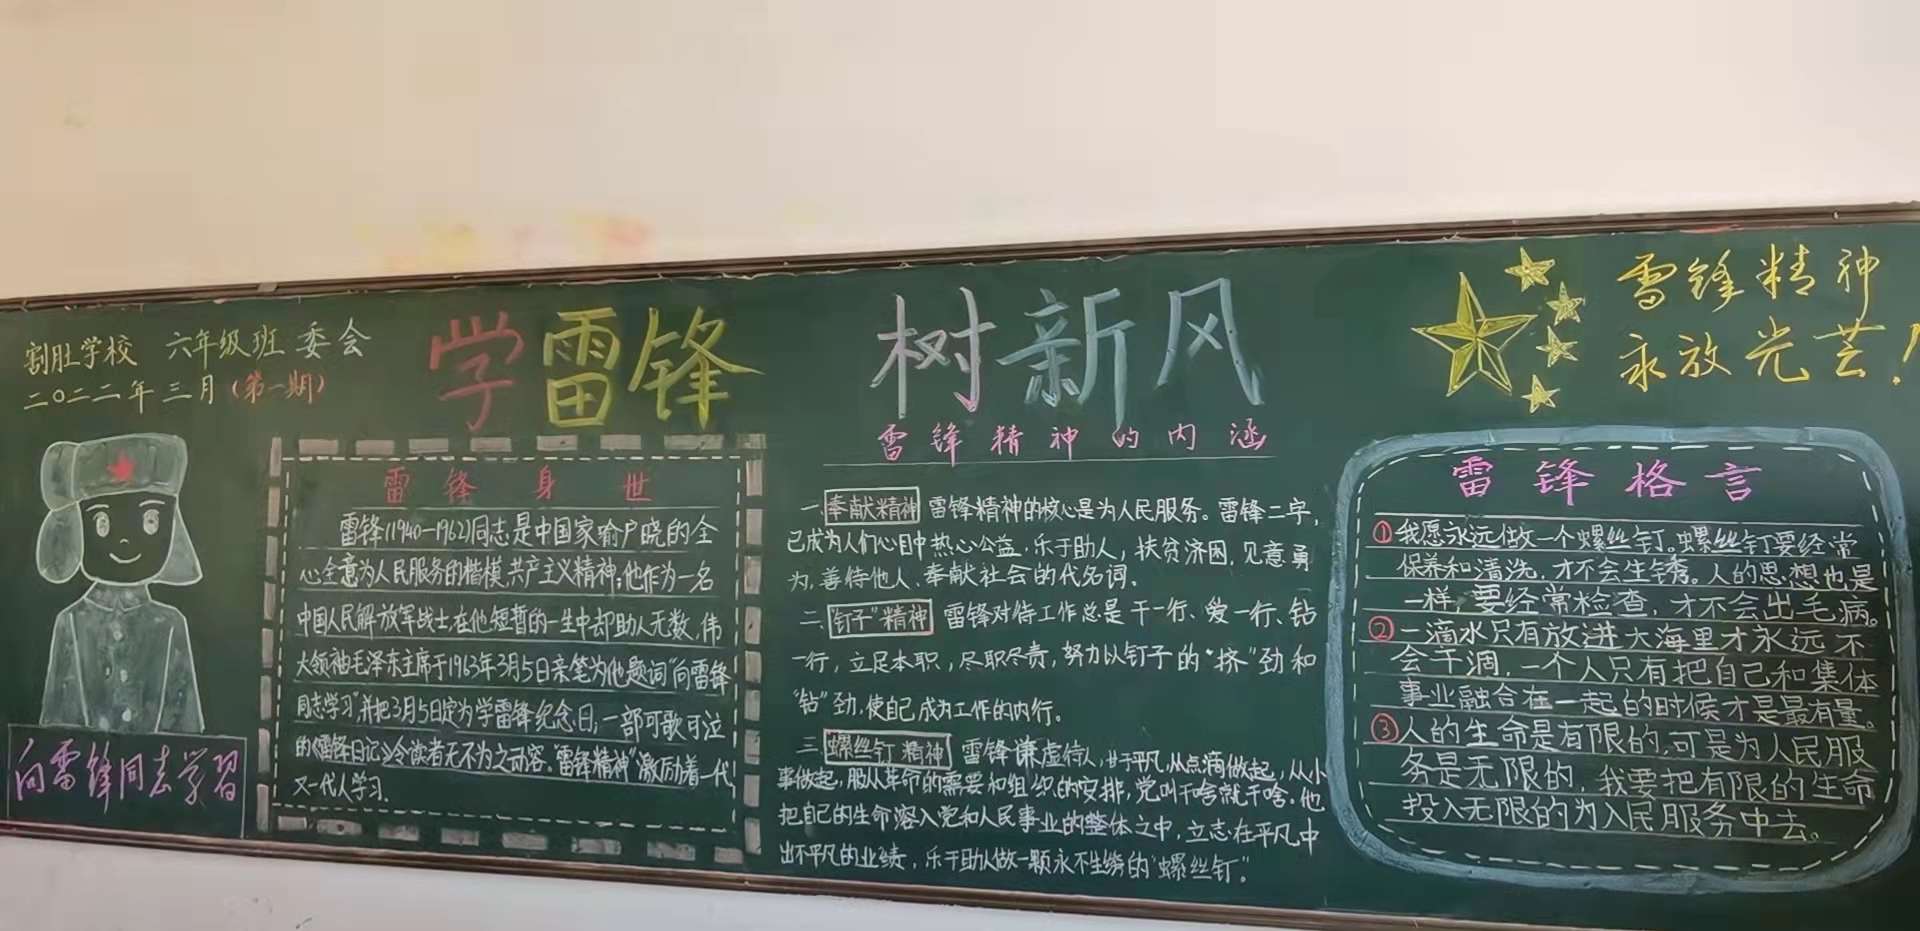 割肚学校 六年级班委会
二〇二二年三月(第一期)
学雷锋 树新风
雷锋精神
永放光芒!
向雷锋同志学习
雷锋身世
雷锋(1940—1962)同志是中国家喻户晓的全
心全意为人民服务的楷模,共产主义精神;他作为一名
中国人民解放军战士,在他短暂的一生中却助人无数,伟
大领袖毛泽东主席于1963年3月5日亲笔为他题词“向雷锋
同志学习”,并把3月5日定为学雷锋纪念日;一部可歌可泣
的《雷锋日记》令读者无不为之动容。“雷锋精神”激励着一代
又一代人学习.
雷锋精神的内涵
一、奉献精神 雷锋精神的核心是为人民服务。雷锋二字,
已成为人们心目中热心公益、乐于助人,扶贫济困,见意勇
为,善待他人、奉献社会的代名词。
二、“钉子”精神 雷锋对待工作总是干一行、爱一行、钻
一行,立足本职,尽职尽责,努力以钉子的“挤”劲和
“钻”劲,使自己成为工作的内行。
三、螺丝钉精神 雷锋谦虚待人,甘于平凡,从点滴做起,从小
事做起,服从革命的需要和组织的安排,党叫干啥就干啥。他
把自己的生命溶入党和人民事业的整体之中,立志在平凡中
出不平凡的业绩,乐于助人做一颗永不生锈的“螺丝钉”。
雷锋格言
①我愿永远做一个螺丝钉。螺丝钉要经常
保养和清洗,才不会生锈。人的思想也是
一样,要经常检查,才不会出毛病。
②一滴水只有放进大海里才永远不
会干涸,一个人只有把自己和集体
事业融合在一起的时候才是最有量。
③人的生命是有限的,可是为人民服
务是无限的,我要把有限的生命
投入无限的为人民服务中去。